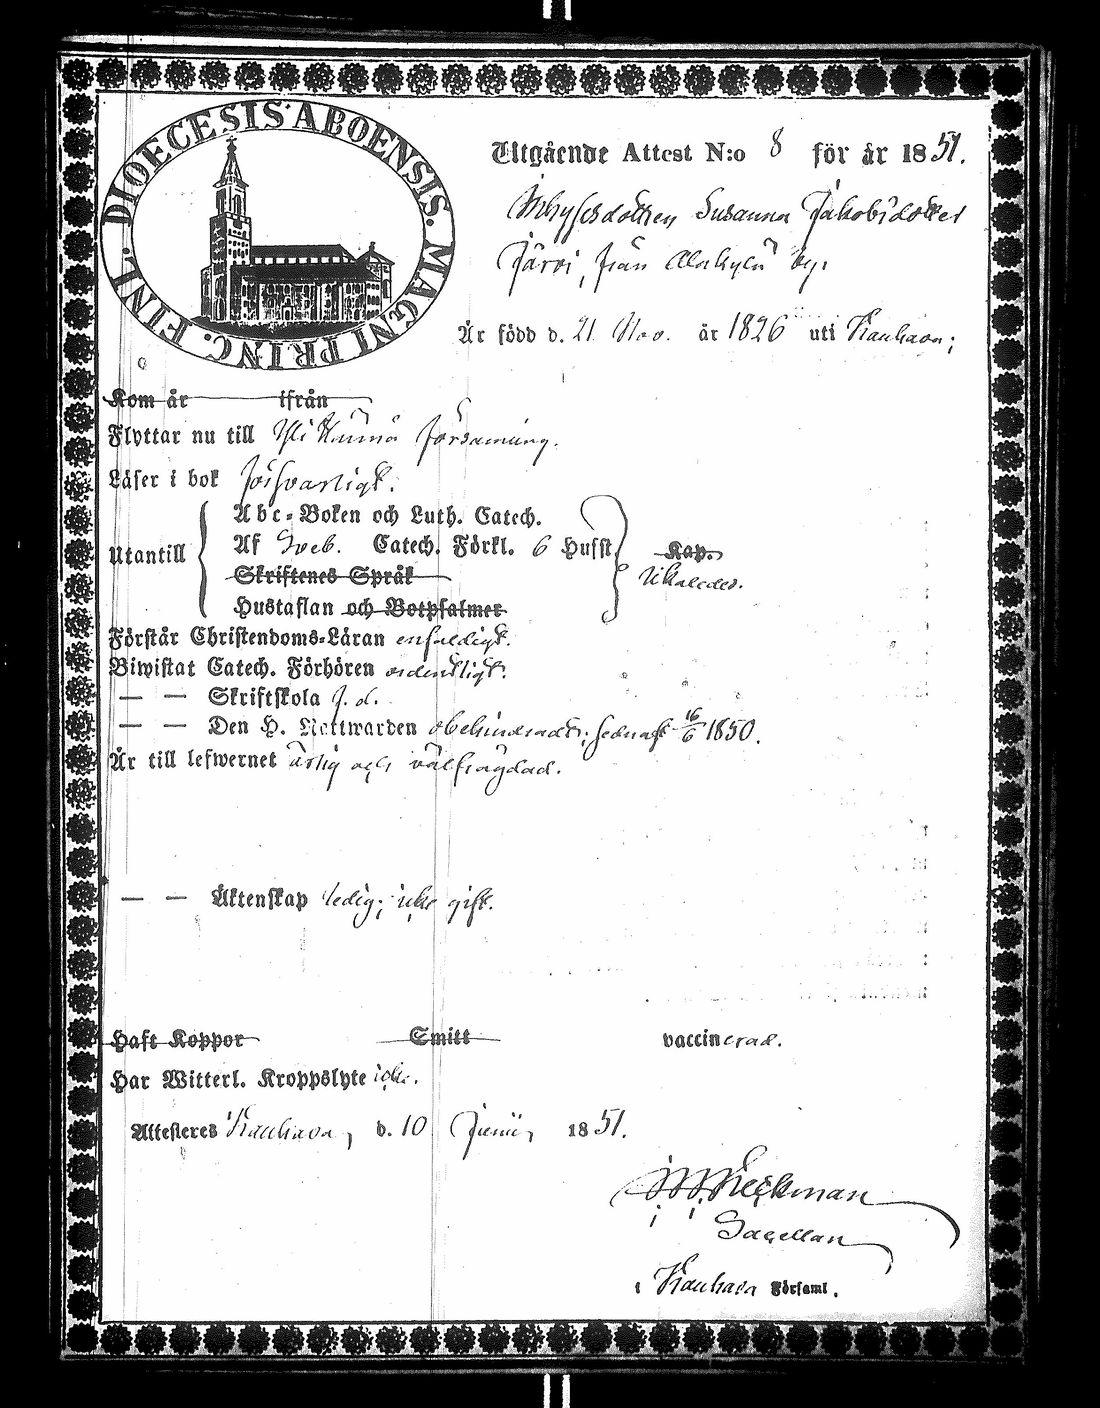 DIOECESIS ABOENSIS. MAGNI PRINC. FINL.
Utgående Attest N:o 8 för år 1851.
Inhysesdottren Susanna Jakobsdotter
Järvi, från Alakylä by.
Är född d. 21 Nov. år 1826 uti Kauhava;
Kom år ifrån
Flyttar nu till Ylikannus församling.
Läser i bok försvarligt.
Utantill
Abc-Boken och Luth. Catech.
Af Sveb. Catech. Förkl. 6 Hufst. Kap.
Skriftenes Språk
Hustaflan och Botpsalmer
Förstår Christendoms-Läran enfaldigt.
Biwistat Catech. Förhören ordentligt.
— — Skriftskola
— — Den H. Nattwarden obehindradt; sednast 16/6 1850.
Är till lefwernet ärlig och välfrägdad.
— — Äktenskap ledig; icke gift.
Haft Koppor Smitt vaccinerad.
Har Witterl. Kroppslyte icke.
Attesteres Kauhava, d. 10 Junii, 1851.
Heickman
Sacellan
i Kauhava Församl.